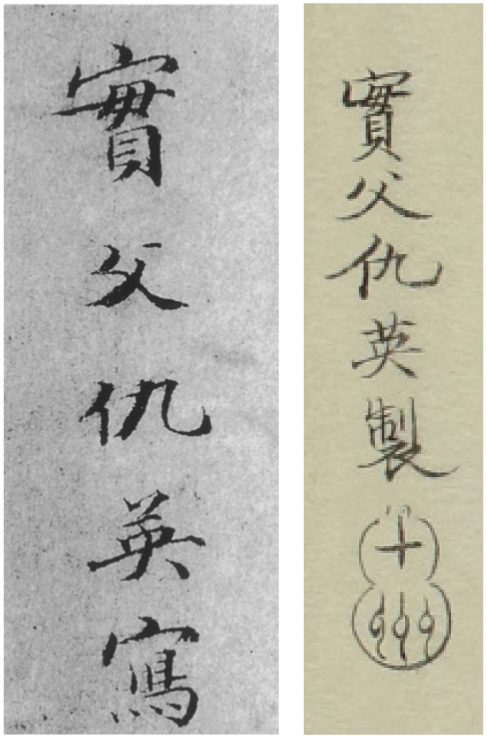 實父仇英寫
實父仇英製
十